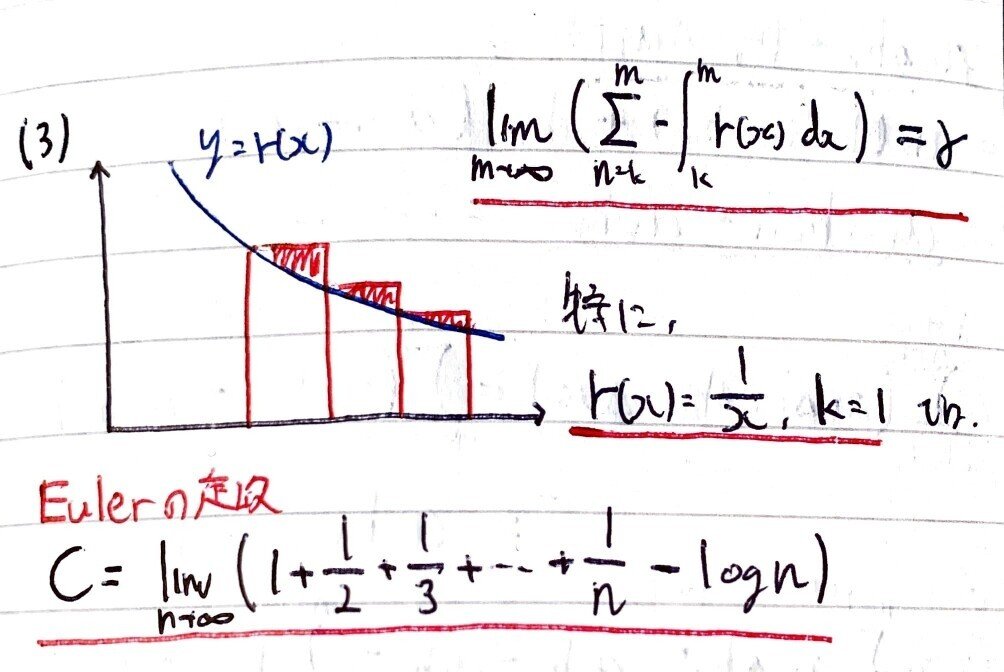 (3)
y=r(x)
lim_{m→∞} ( ∑_{n=k}^{m} - ∫_{k}^{m} r(x) dx ) = γ
特に,
r(x)= 1/x, k=1
Eulerの定数
C= lim_{n→∞} (1+ 1/2 + 1/3 +…+ 1/n - logn)